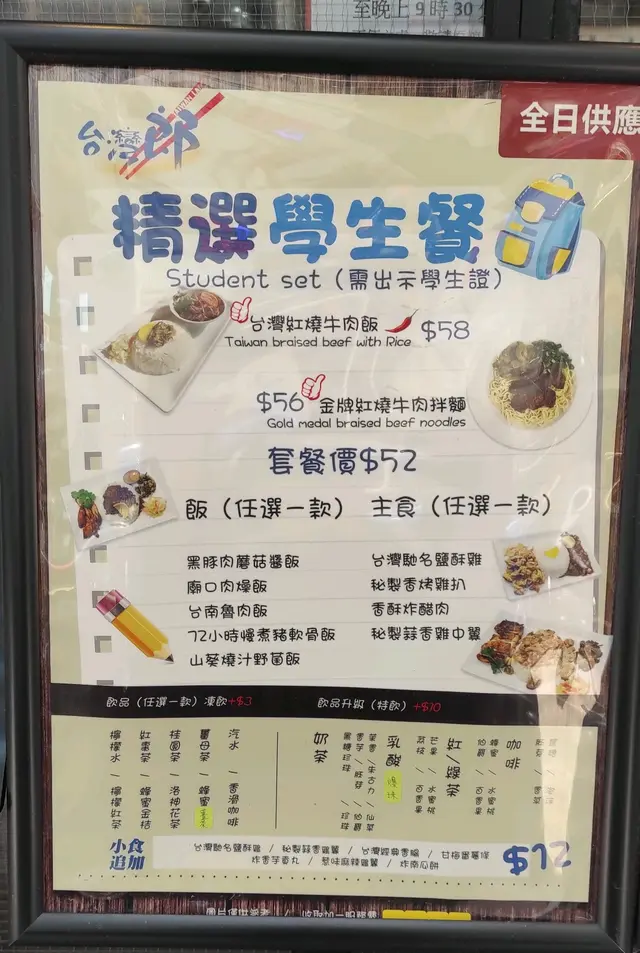 至晚上9時30分
台灣郎
TAIWAN LANG
全日供應
精選學生餐
Student set (需出示學生證)
台灣紅燒牛肉飯 $58
Taiwan braised beef with Rice
$56 金牌紅燒牛肉拌麵
Gold medal braised beef noodles
套餐價$52
飯 (任選一款) 主食 (任選一款)
黑豚肉蘑菇醬飯 台灣馳名鹽酥雞
廟口肉燥飯 秘製香烤雞扒
台南魯肉飯 香酥炸醋肉
72小時慢煮豬軟骨飯 秘製蒜香雞中翼
山葵燒汁野菌飯
飲品 (任選一款) 凍飲+$3 飲品升級 (特飲) +$10
檸檬水 / 檸檬紅茶
紅棗茶 / 蜂蜜金桔
桂圓茶 / 洛神花茶
薑母茶 / 蜂蜜
汽水 / 香滑咖啡
奶茶
乳酸
紅/綠茶
咖啡
小食追加
台灣馳名鹽酥雞 / 秘製蒜香雞翼 / 台灣經典香腸 / 甘梅番薯條
炸香芋貢丸 / 惹味麻辣雞翼 / 炸南瓜餅
$12